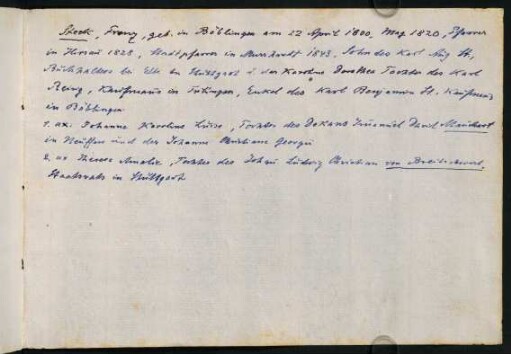 Steck, Franz, geb. in Böblingen am 22 April 1800, Mag 1820, Pfarrer
in Hirsau 1828, Stadtpfarrer in Murrhardt 1843, Sohn des Karl Aug St,
Buchhalters bei in Stuttgart u. der Karoline Dorothea Tochter des Karl
Kaufmanns in Tübingen, Enkel des Karl Benjamin St, Kaufmanns
in Böblingen
1. ux: Johanne Karoline Luise, Tochter des Dekans Immanuel David Mauchart
in Neuffen und der Johanne Christiane Georgii
2. ux Therese Amalie, Tochter des Johann Ludwig Christian von
Staatsrats in Stuttgart